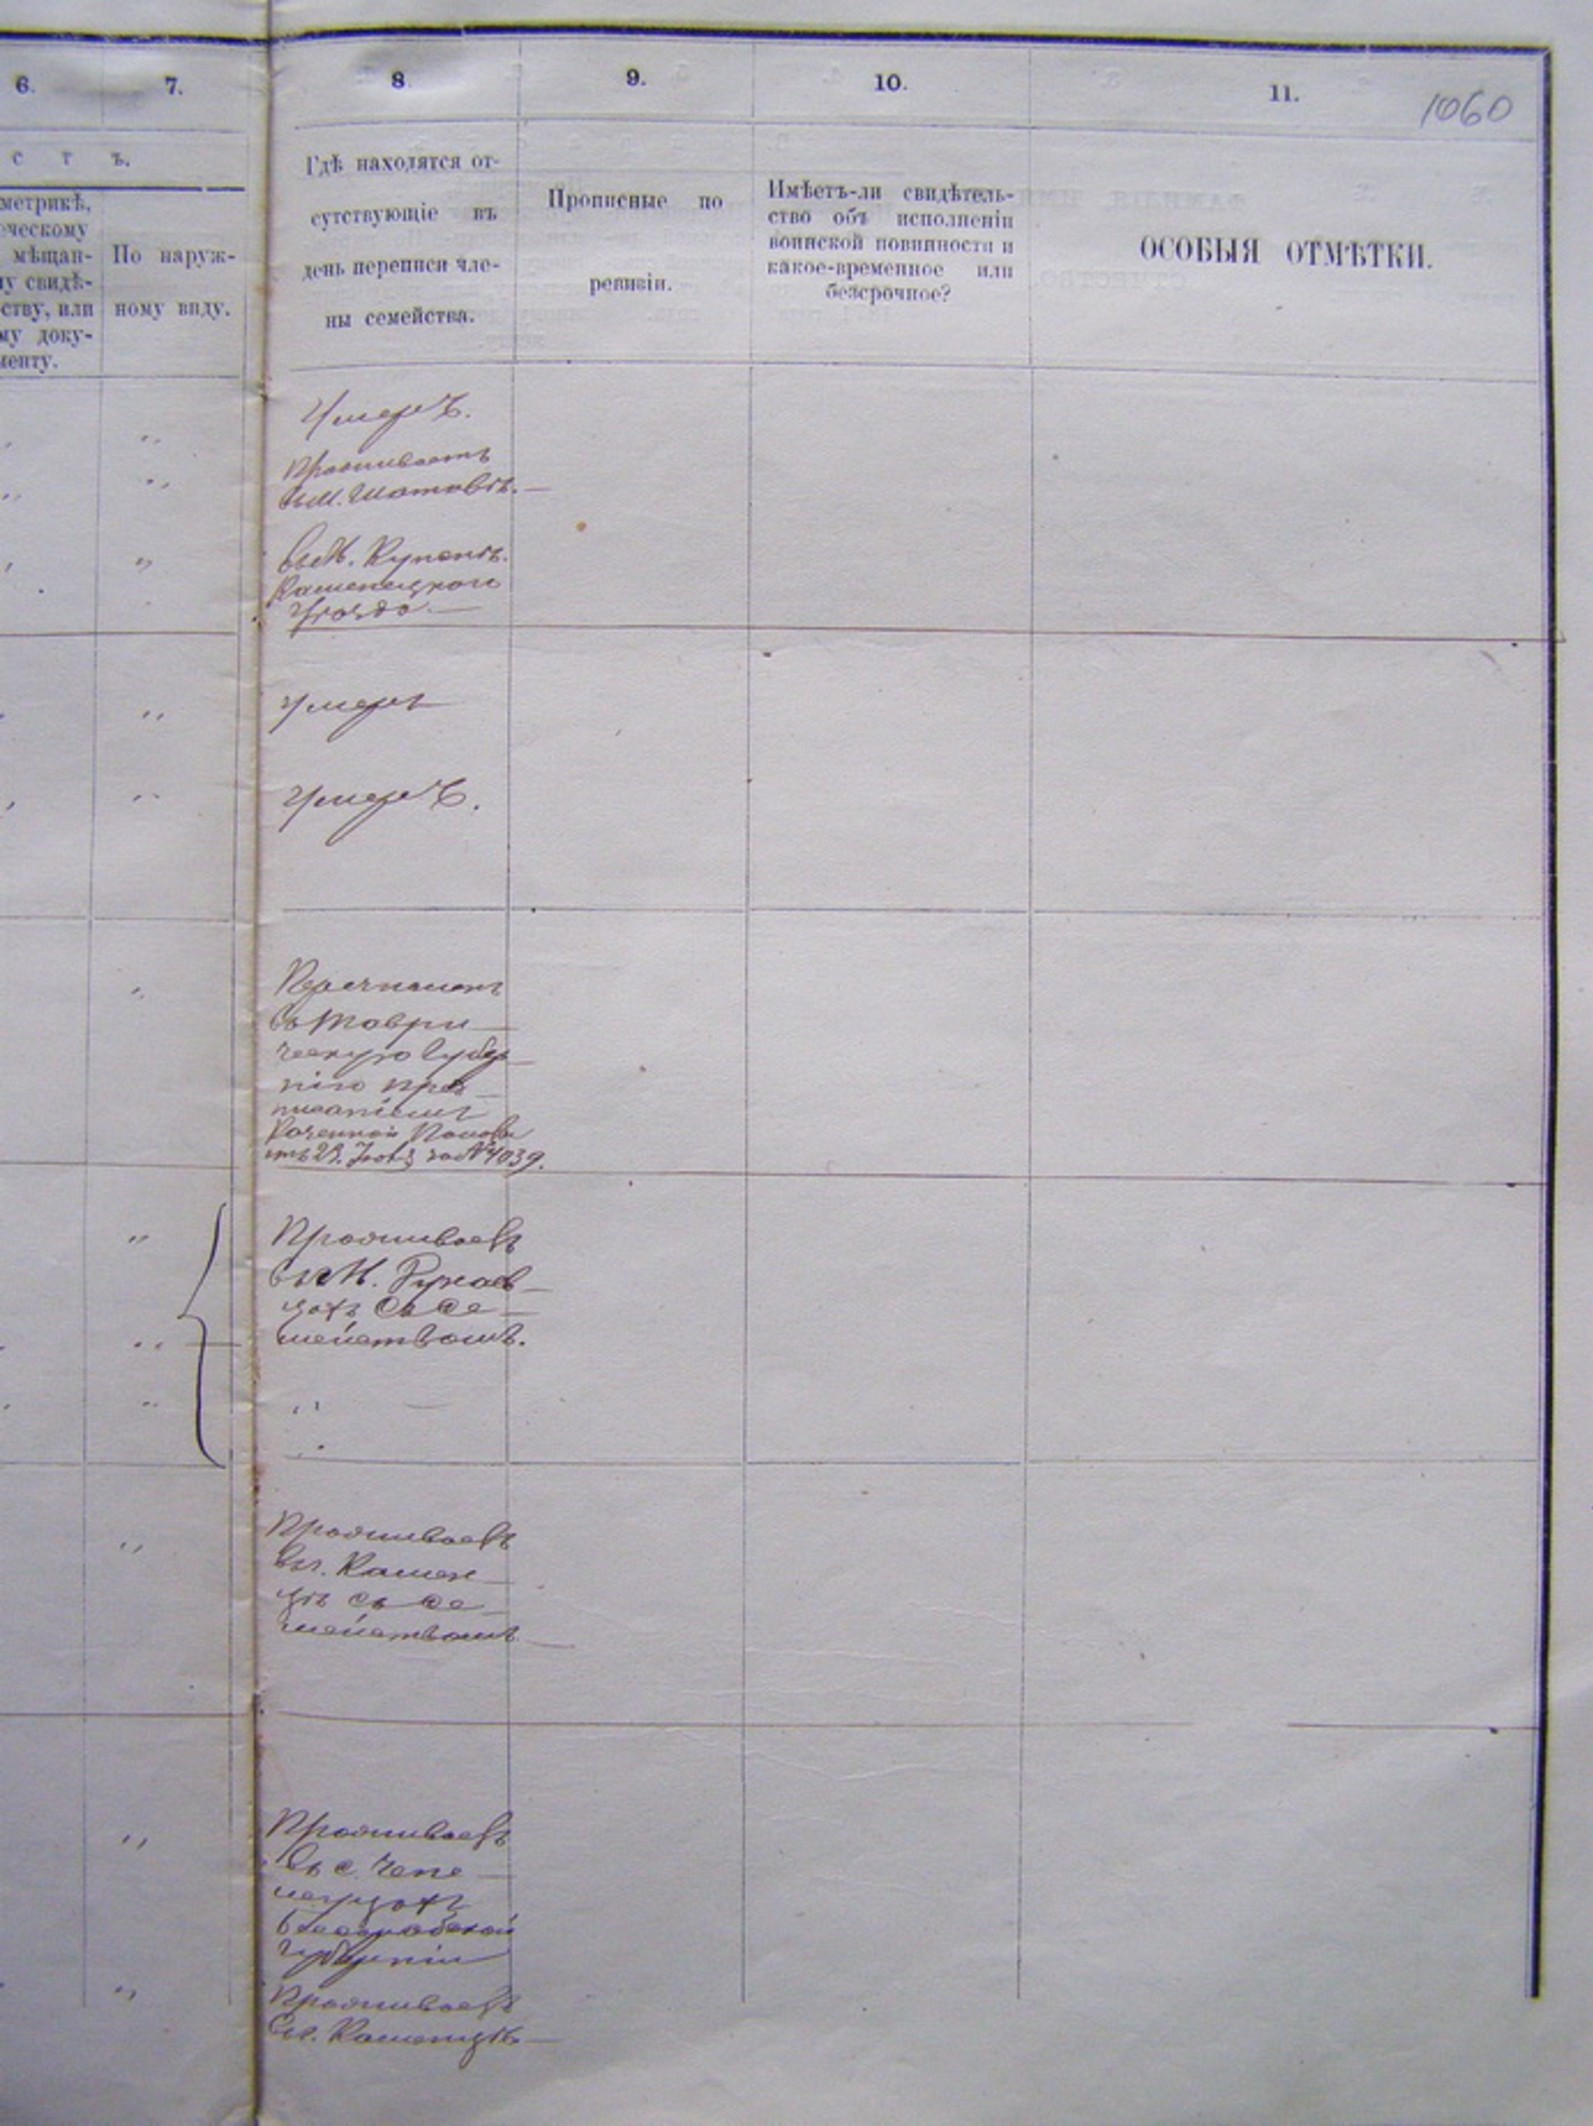 6.
7.
8
9.
10.
11.
1060
с т ъ.
метрикѣ,
ческому
мѣщан-
у свидѣ-
ству, или
му доку-
менту.
По наруж-
ному виду.
Гдѣ находятся от-
сутствующіе въ
день переписи чле-
ны семейства.
Прописные по
ревизіи.
Имѣетъ-ли свидѣтель-
ство объ исполненіи
воинской повинности и
какое-временное или
безсрочное?
ОСОБЫЯ ОТМѢТКИ.
Умеръ.
Проживаетъ
въ м. Шатавѣ.
въ М.
Каменецкого
Уѣзда.
Умеръ
Умеръ.
Перечисленъ
въ Таври
ческую Губер
нію пред
писаніемъ
Казенной
29. за № 4039.
Проживаетъ
въ М.
цахъ съ се
мействомъ.
Проживаетъ
въ г. Камен
цѣ съ се
мействомъ.
Проживаетъ
въ с.
Бессарабской
Губерніи
Проживаетъ
въ г. Каменцѣ